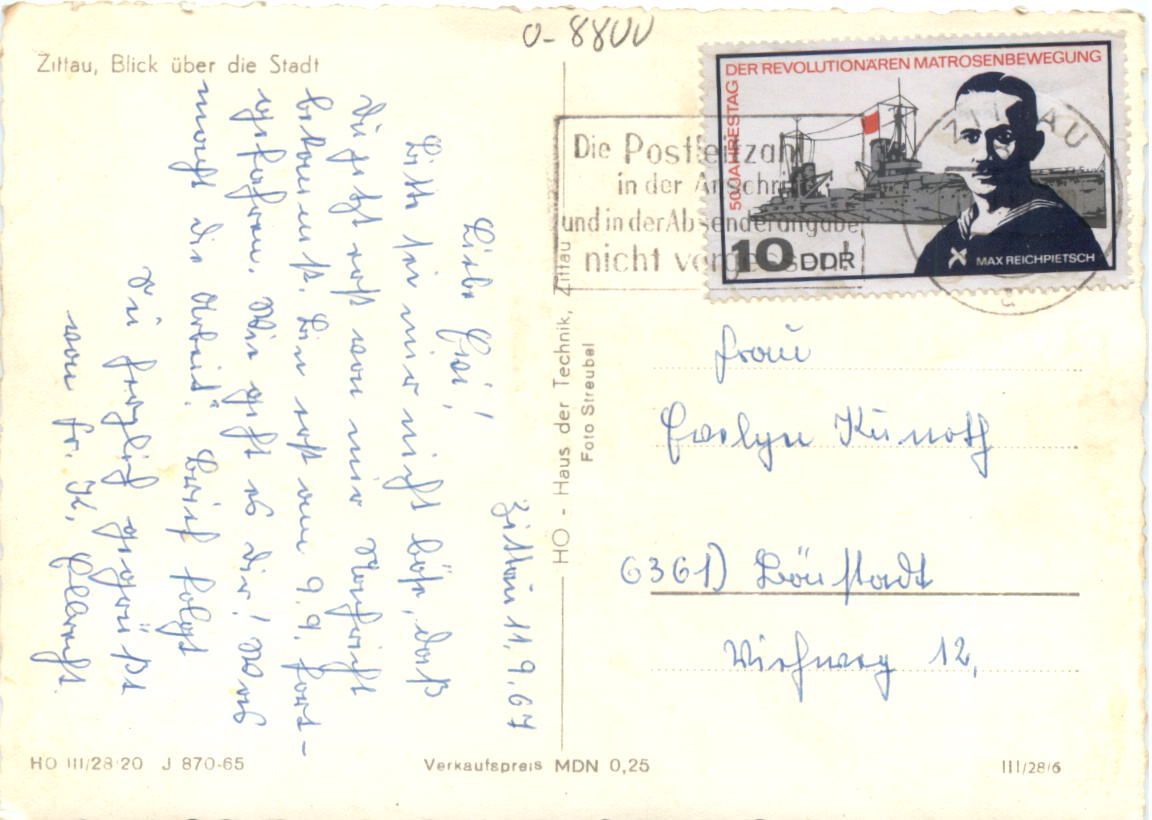 O-8800
Zittau, Blick über die Stadt
50. JAHRESTAG
DER REVOLUTIONÄREN MATROSENBEWEGUNG
10 DDR
MAX REICHPIETSCH
ZITTAU
Die Postleitzahl
in der Anschrift
und in der Absenderangabe
nicht vergessen!
Zittau 11.9.67
Liebe Evi!
Bitte sei mir nicht böse, daß
Du jetzt erst von mir Nachricht
bekommst. Bin erst am 9.9. fort-
gefahren. Wie geht es Dir! Was
macht die Arbeit. Brief folgt
Sei herzlich gegrüßt
von Fr. K.
HO - Haus der Technik, Zittau
Foto Streubel
Frau
Evelyn Kunath
6361) Böustadt
Viehweg 12,
HO III/28-20 J 870-65
Verkaufspreis MDN 0,25
III/28/6